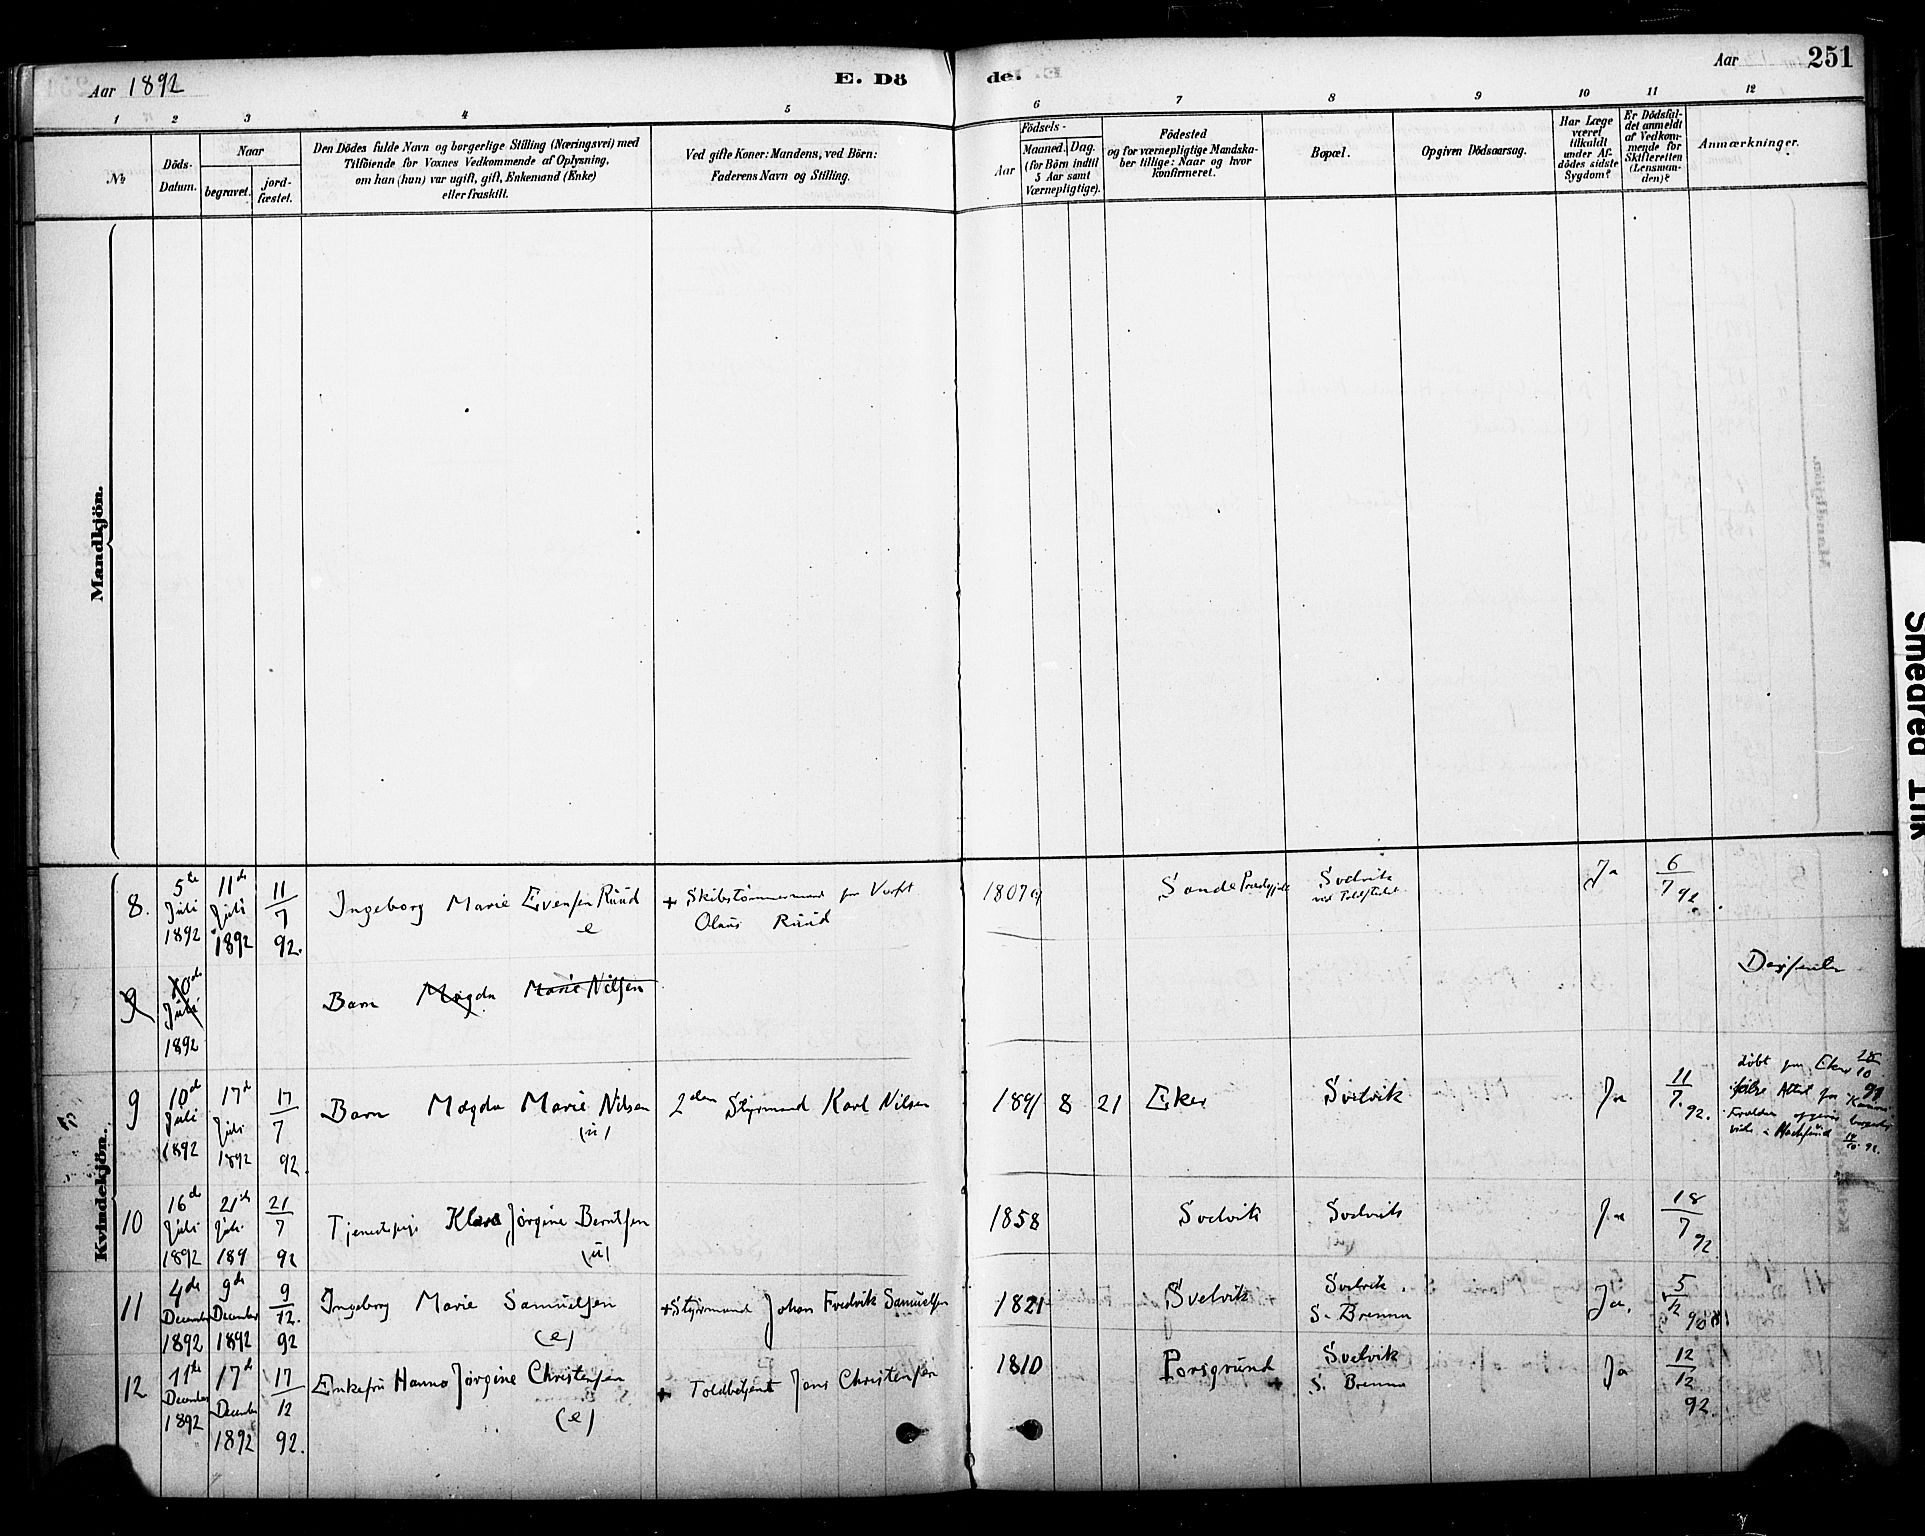 Aar 1892
E. Dö
de.
Aar
251
1 2 3 4 5 6 7 8 9 10 11 12
№
Döds-
Datum.
Naar
begravet.
jord-
fæstet.
Den Dödes fulde Navn og borgerlige Stilling (Næringsvei) med
Tilföiende for Voxnes Vedkommende af Oplysning,
om han (hun) var ugift, gift, Enkemand (Enke)
eller fraskilt.
Ved gifte Koner: Mandens, ved Börn:
Faderens Navn og Stilling.
Födsels-
Aar
Maaned. Dag.
(for Börn indtil
5 Aar samt
Værnepligtige).
Födested
og for værnepligtige Mandska-
ber tillige: Naar og hvor
konfirmeret.
Bopæl.
Opgiven Dödsaarsag.
Har Læge
været
tilkaldt
under Af-
dödes sidste
Sygdom?
Er Dödsfal-
det anmeldt
af Vedkom-
mende for
Skifteretten
(Lensman-
den)?
Anmærkninger.
Mandkjön.
Kvindekjön.
8. 5te Juli 1892 11te Juli 1892 11/7 92. Ingeborg Marie Evensen Ruud e + Skibstømmermand
Olaus Ruud
Sande Svelvik Ja 6/7 92.
9 10de Juli 1892 Barn Magda Marie Nilsen
9 10de Juli 1892 17de Juli 1892 17/7 92. Barn Magda Marie Nilsen (u) Styrmand Karl Nilsen 1891 8 21 Eker Svelvik Ja 11/7 92.
døbt Eker
10 16de Juli 1892 21de Juli 189 21/7 92 Tjenestepige Klara Jørgine Berntsen (u) 1858 Svelvik Svelvik Ja 18/7 92
11 4de December 1892 9de December 1892 9/12. 92 Ingeborg Marie Samuelsen (e) + Styrmand Johan Fredrik Samuelsen 1821 Svelvik Svelvik.
S. Brenna Ja. 5/12
12 11te December 1892 17de December 1892 17/12 92. Enkefru Hanna Jørgine Christensen (e) + Toldbetjent Jens Christensen 1810 Porsgrund Svelvik
S. Brenna Ja 12/12 92.
Smeared Ink